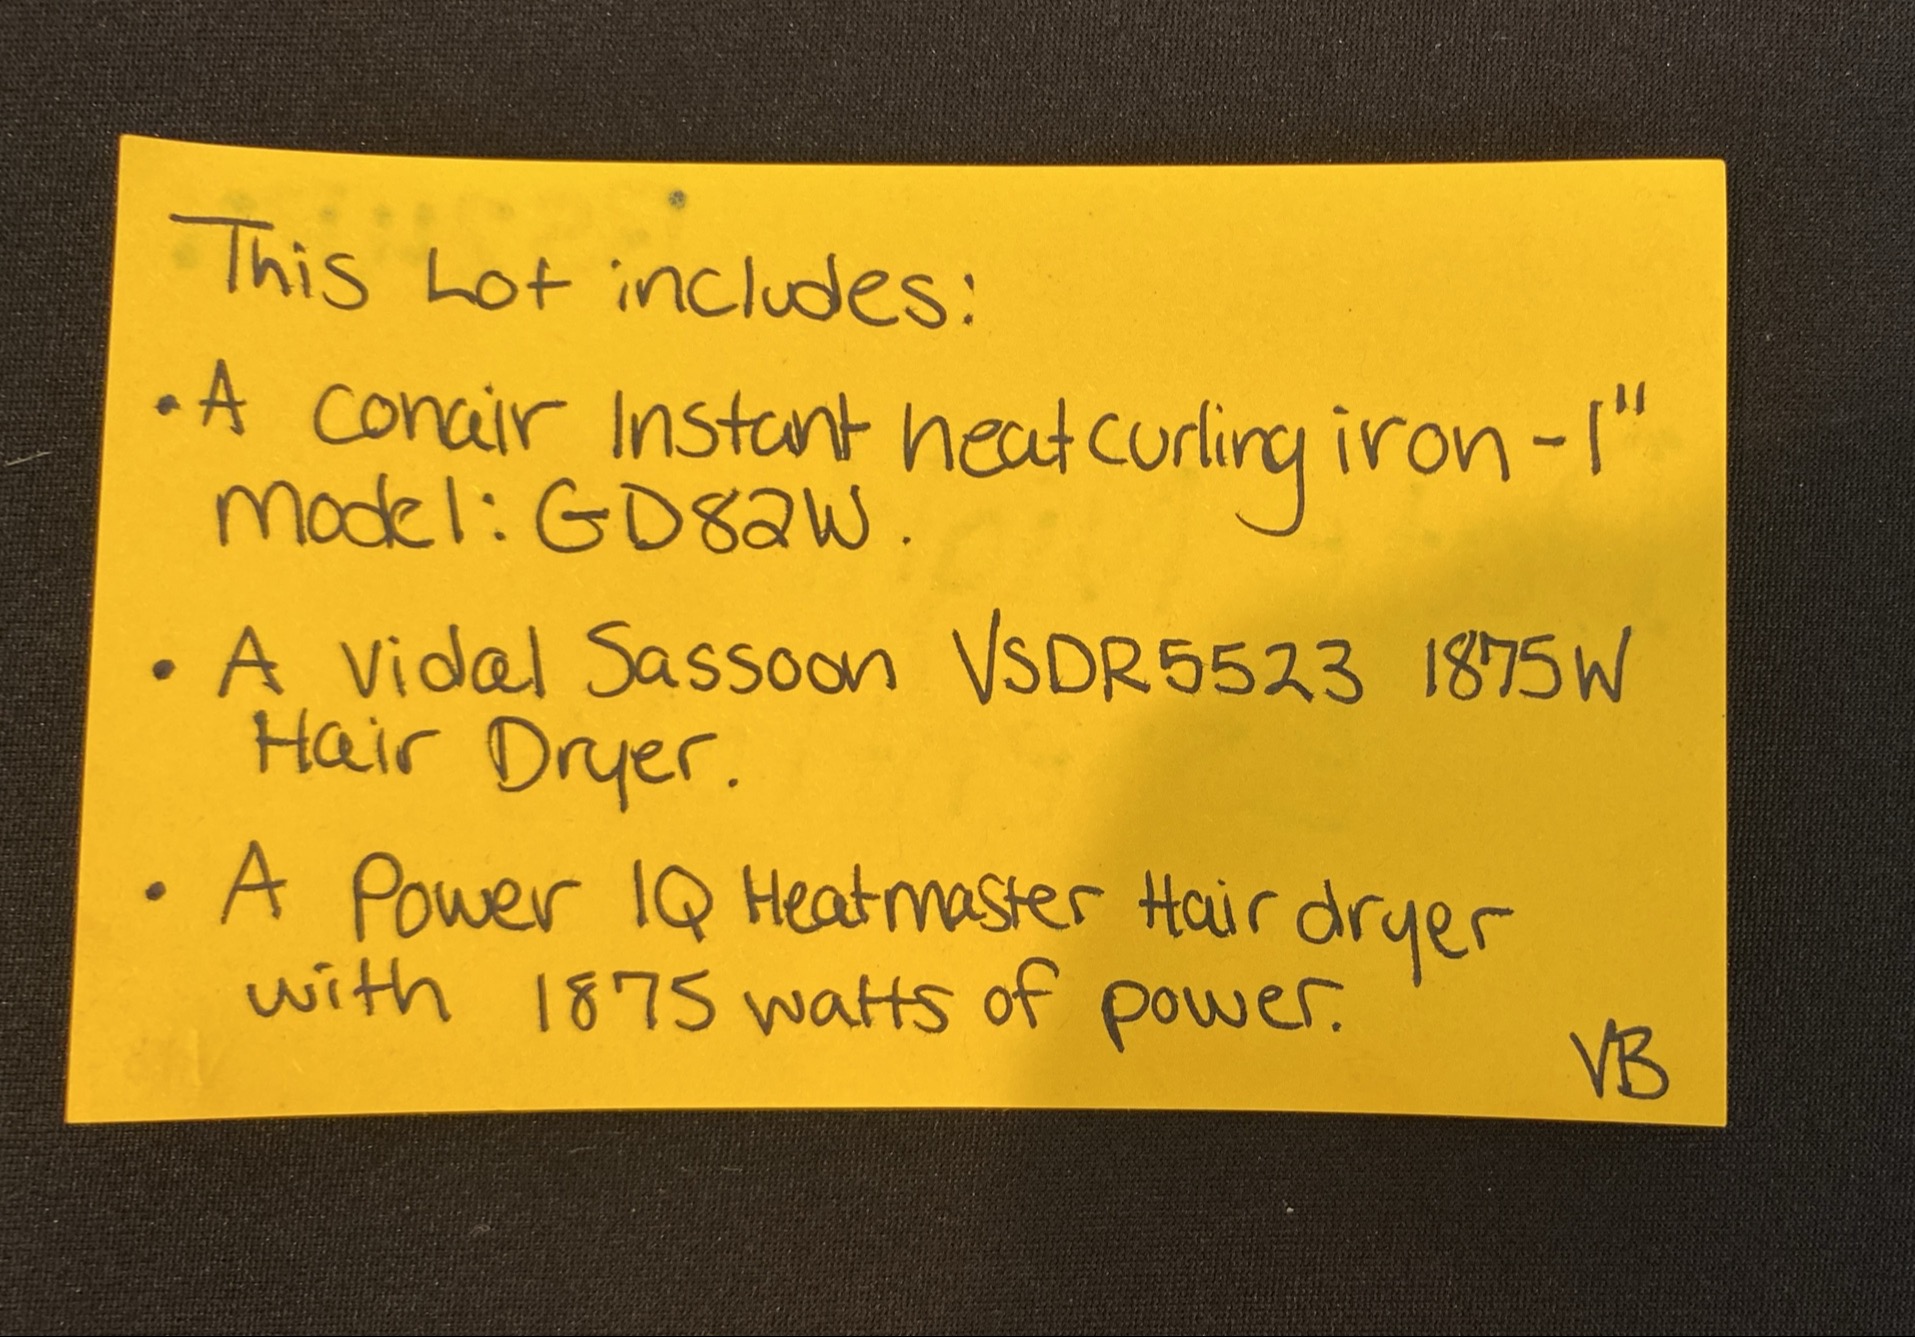 This Lot includes:
• A conair Instant heat curling iron - 1"
model: GD82W.
• A Vidal Sassoon VSDR5523 1875W
Hair Dryer.
• A Power IQ Heatmaster Hair dryer
with 1875 watts of power.
VB